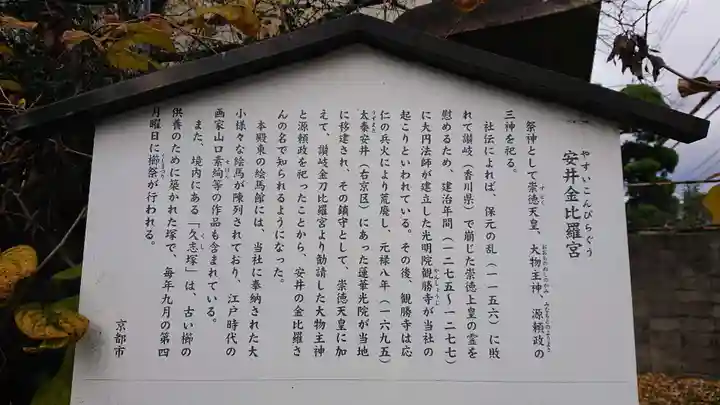 やすいこんぴらぐう
安井金比羅宮
祭神として崇徳天皇、大物主神、源頼政の
三神を祀る。
社伝によれば、保元の乱（一一五六）に敗
れて讃岐（香川県）で崩じた崇徳上皇の霊を
慰めるため、建治年間（一二七五～一二七七）
に大円法師が建立した光明院観勝寺が当社の
起こりといわれている。その後、観勝寺は応
仁の兵火により荒廃し、元禄八年（一六九五）
太秦安井（右京区）にあった蓮華光院が当地
に移建され、その鎮守として、崇徳天皇に加
えて、讃岐金刀比羅宮より勧請した大物主神
と源頼政を祀ったことから、安井の金比羅さ
んの名で知られるようになった。
本殿東の絵馬館には、当社に奉納された大
小様々な絵馬が陳列されており、江戸時代の
画家山口素絢等の作品も含まれている。
また、境内にある「久志塚」は、古い櫛の
供養のために築かれた塚で、毎年九月の第四
月曜日に櫛祭が行われる。
京都市